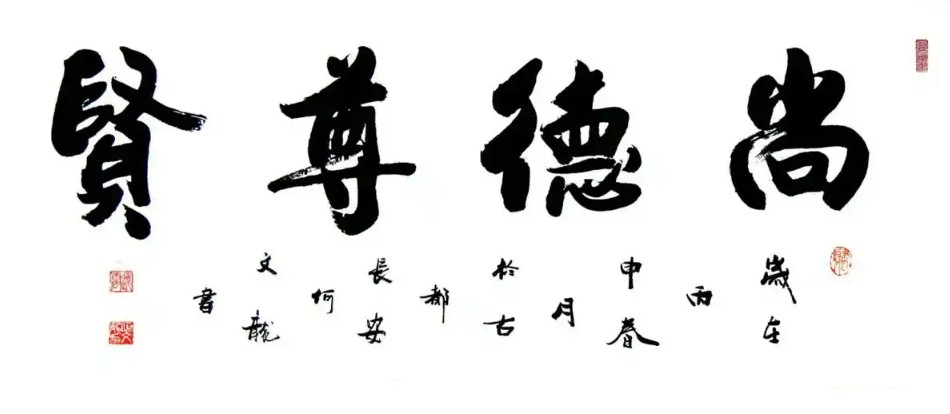 尚德尊賢
歲在丙申春月於古都長安何文龍書